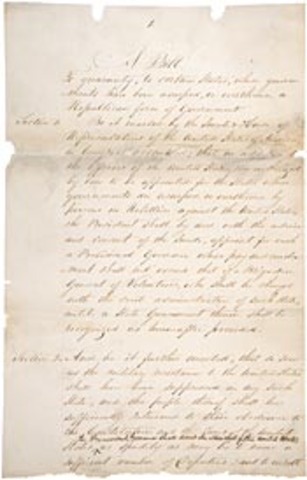 A Bill
to guaranty, to certain States, whose govern-
ments have been usurped, or overthrown, a
Republican form of Government
Section 1. Be it enacted by the Senate & House of
Representatives of the United States of America
in Congress assembled, that in
of the United States,
be appointed for the States whose
governments are usurped or overthrown by
persons in Rebellion against the United States
the President shall by and with the advice
and consent of the Senate, appoint for each
a Provisional Governor whose pay and emolu-
ment shall not exceed that of a Brigadier
General of Volunteers, who shall be charged
with the civil administration of such State
until a State Government therein shall be
recognized as hereinafter provided.
Section 2. And be it further enacted, that so soon
as the military resistance to the United States
shall have been suppressed in any such
State, and the people thereof shall have
sufficiently returned to their obedience to
the Constitution and the Laws of the United
States
the Provisional Governor shall
as speedily as may be
sufficient number of